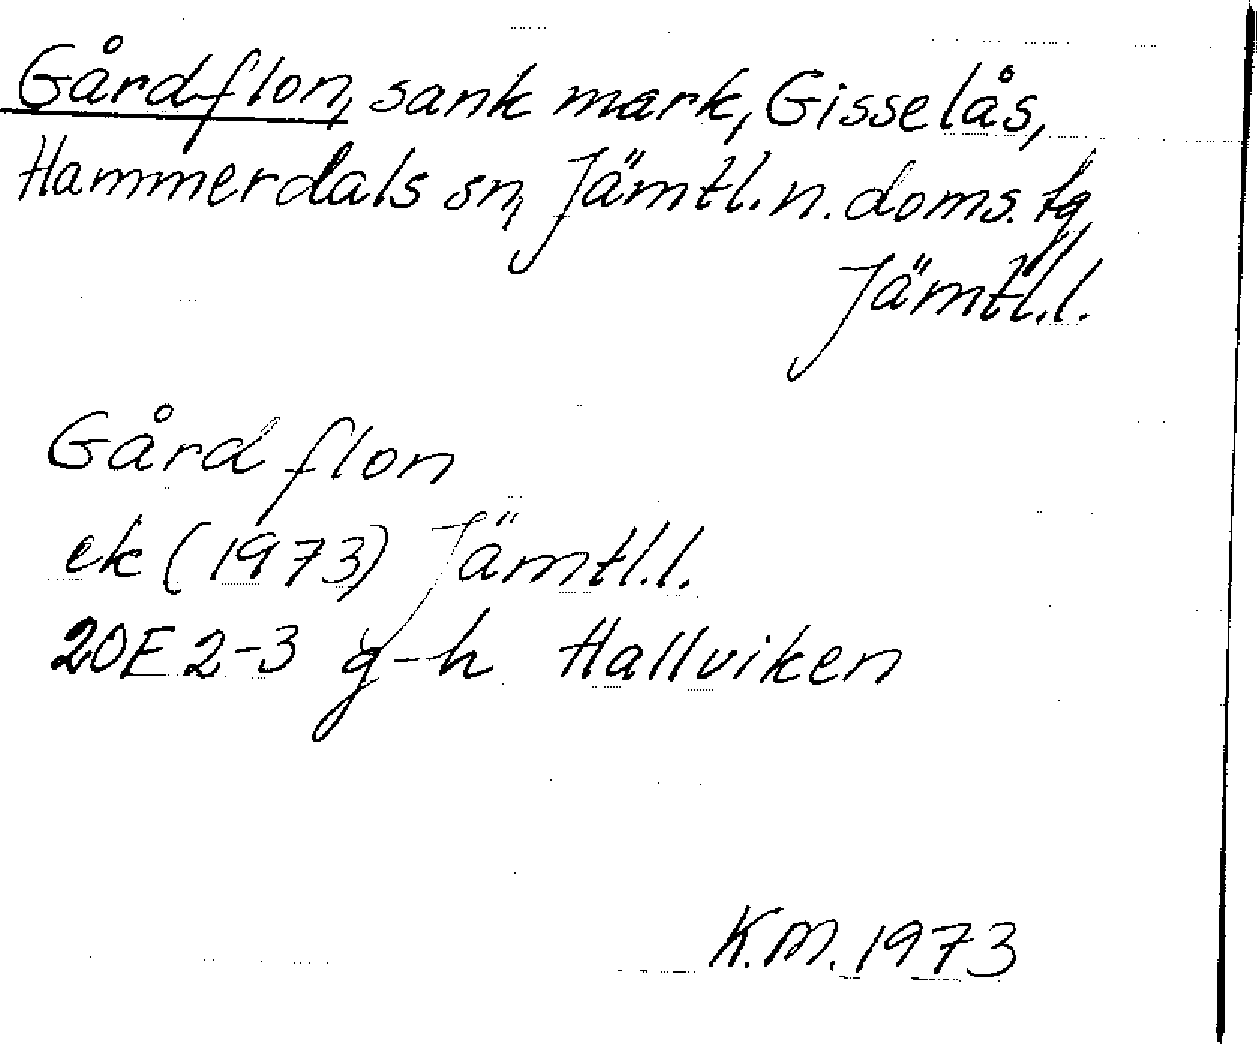 Gårdflon, sank mark, Gisselås,
Hammerdals sn, Jämtl. n. doms. tg,
Jämtl. l.
Gårdflon
ek (1973) Jämtl. l.
20E 2-3 g-h Hallviken
K.M. 1973